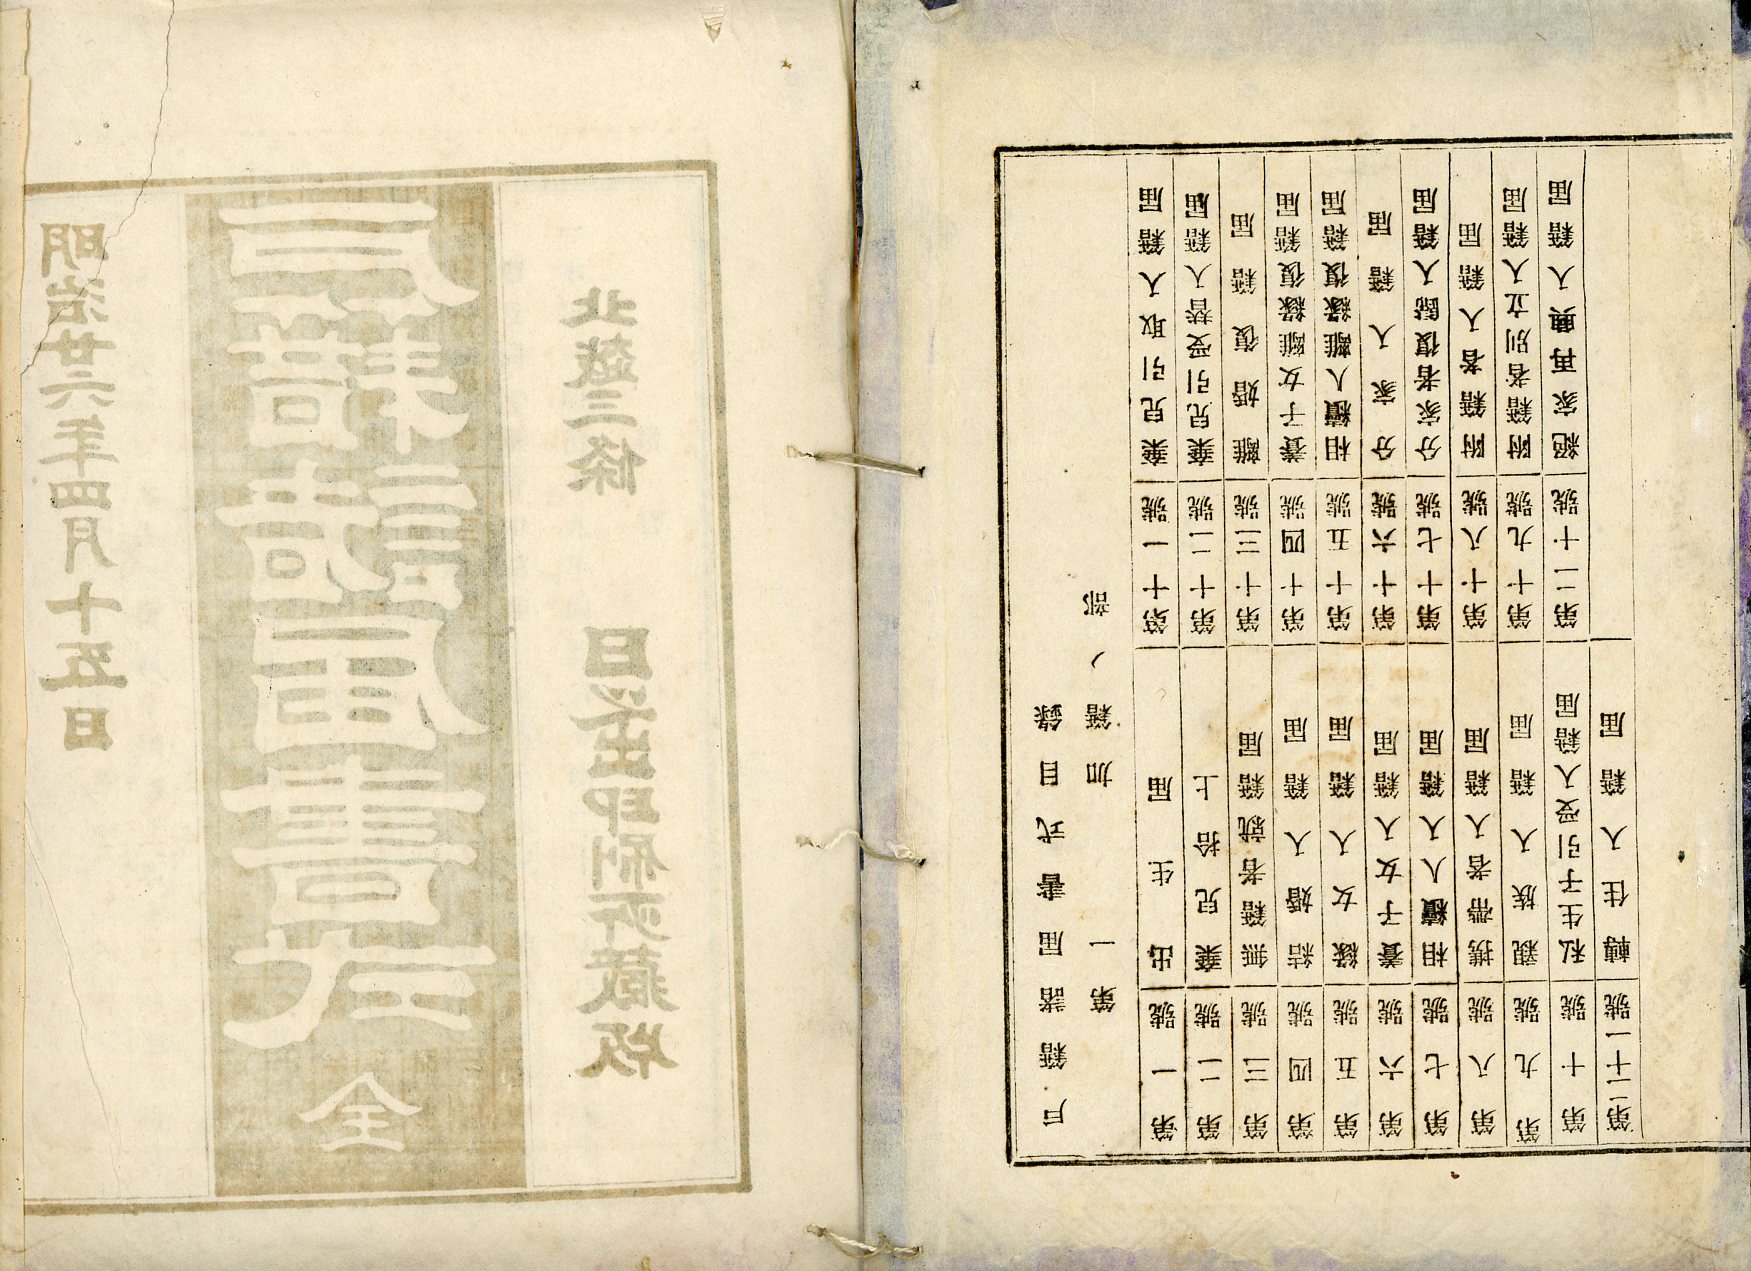 明治廿六年四月十五日
戸籍諸届書式 全
北越三條 日之出印刷所藏版
戸籍諸届書式目錄
第一 加籍ノ部
第一號 出生届
第二號 棄兒拾上
第三號 無籍者就籍届
第四號 結婚入籍届
第五號 緣女入籍届
第六號 養子女入籍届
第七號 相續人入籍届
第八號 携帶者入籍届
第九號 親族入籍届
第十號 私生子引受入籍届
第二十一號 轉住入籍届
第十一號 棄兒引取入籍届
第十二號 棄兒引受替入籍届
第十三號 離婚復籍届
第十四號 養子女離緣復籍届
第十五號 相續人離緣復籍届
第十六號 分家入籍届
第十七號 分家者復歸入籍届
第十八號 附籍者入籍届
第十九號 附籍者別立入籍届
第二十號 絕家再興入籍届